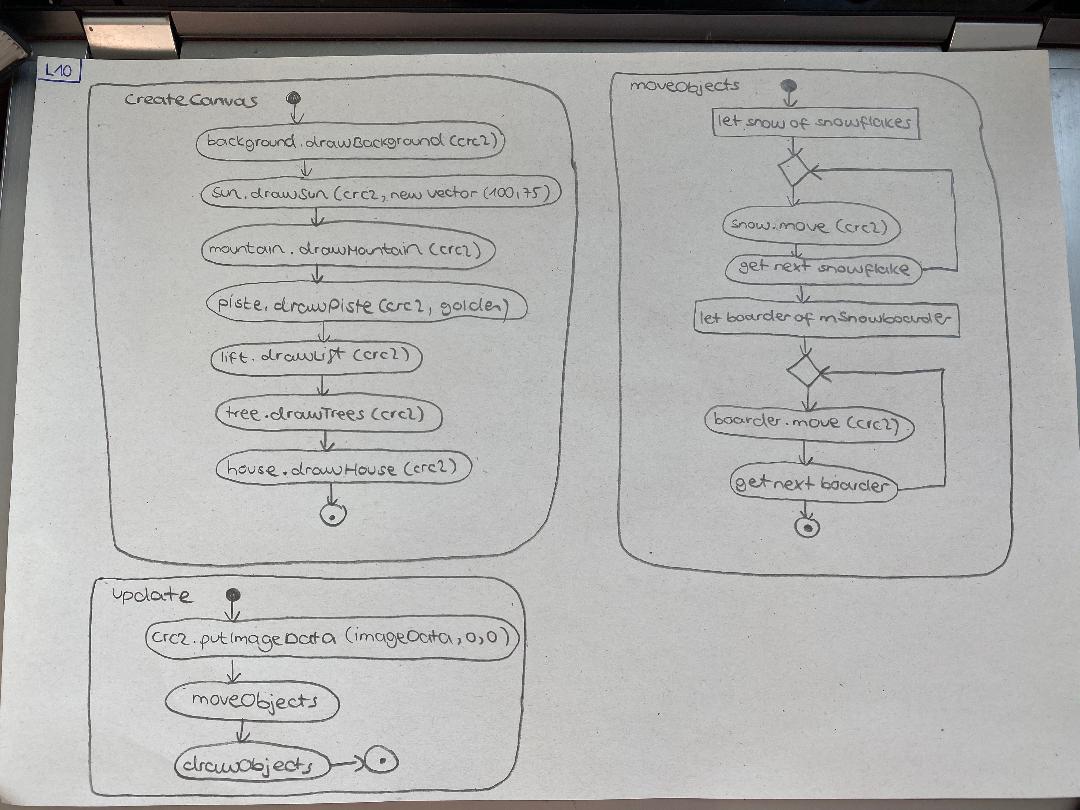 L10
createCanvas
background.drawBackground (crc2)
sun.drawSun (crc2, new vector (100,75)
mountain.drawMountain (crc2)
piste.drawPiste (crc2, golden)
lift.drawList (crc2)
tree.drawTrees (crc2)
house.drawHouse (crc2)
moveObjects
let snow of snowflakes
snow.move (crc2)
get next snowflake
let boarder of mSnowboarder
boarder.move (crc2)
get next boarder
update
crc2.putImageData (imageData,0,0)
moveObjects
drawObjects